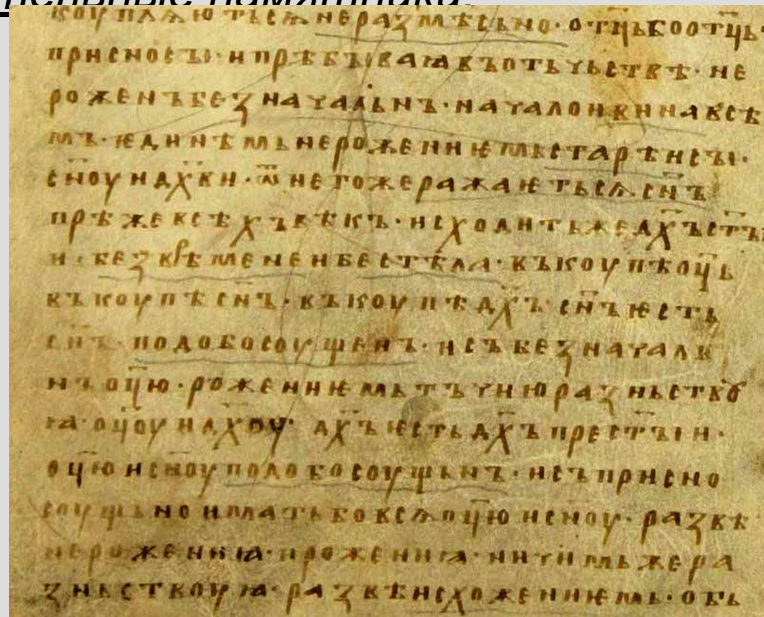 коуплѧютьсѧ неразмѣсьно · оц҃ь бо оц҃ь ·
присносы · и прѣбываꙗ въ отьчьствѣ · не
роженъ безначальнъ · начало и вина всѣ
мъ · ѥдинѣмь нерожениѥмь старѣи сы ·
сн҃оу и дх҃ви · ѿ негоже ражаѥтьсѧ сн҃ъ
прѣже всѣхъ вѣкъ · исходить же дх҃ъ ст҃ы
и · безврѣмене и бестѣла · въкоупѣ оц҃ь
въкоупѣ сн҃ъ · въкоупѣ дх҃ъ сн҃ъ ѥсть
сн҃ъ · подобосоущенъ · и събезначаль
нъ оц҃ю · рожениѥмь тъчию разньствꙋ
ꙗ оц҃оу и дх҃оу · дх҃ъ ѥсть дх҃ъ прест҃ыи ·
оц҃ю и сн҃оу подобосоущьнъ · и съприсно
соущьно имать бо всѧ оц҃ю и сн҃оу · развѣ
нерожениꙗ · и рожениꙗ · ничимьже ра
зньствоуꙗ · развѣ исхожениѥмь · обь